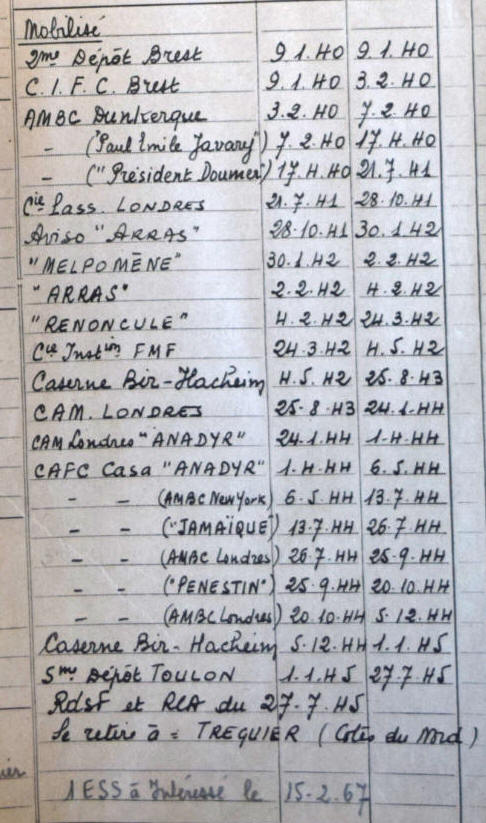 Mobilisé
2me Dépôt Brest 9.1.40 9.1.40
C.I.F.C. Brest 9.1.40 3.2.40
AMBC Dunkerque 3.2.40 7.2.40
- ("Paul Emile Javary") 7.2.40 17.4.40
- ("Président Doumer") 17.4.40 21.7.41
Cie Pass. LONDRES 21.7.41 28.10.41
Aviso "ARRAS" 28.10.41 30.1.42
"MELPOMÈNE" 30.1.42 2.2.42
"ARRAS" 2.2.42 4.2.42
"RENONCULE" 4.2.42 24.3.42
Cie Instion FMF 24.3.42 4.5.42
Caserne Bir-Hacheim 4.5.42 25.8.43
CAM. LONDRES 25.8.43 24.1.44
CAM Londres "ANADYR" 24.1.44 1.4.44
CAFC Casa "ANADYR" 1.4.44 6.5.44
- - (AMBC New York) 6.5.44 13.7.44
- - ("JAMAÏQUE") 13.7.44 26.7.44
- - (AMBC Londres) 26.7.44 25.9.44
- - ("PENESTIN") 25.9.44 20.10.44
- - (AMBC Londres) 20.10.44 5.12.44
Caserne Bir-Hacheim 5.12.44 1.1.45
5me Dépôt TOULON 1.1.45 27.7.45
RdsF et RCA du 27.7.45
Se retire à = TREGUIER (Côtes du Nord)
1 ESS à Intéressé le 15.2.67